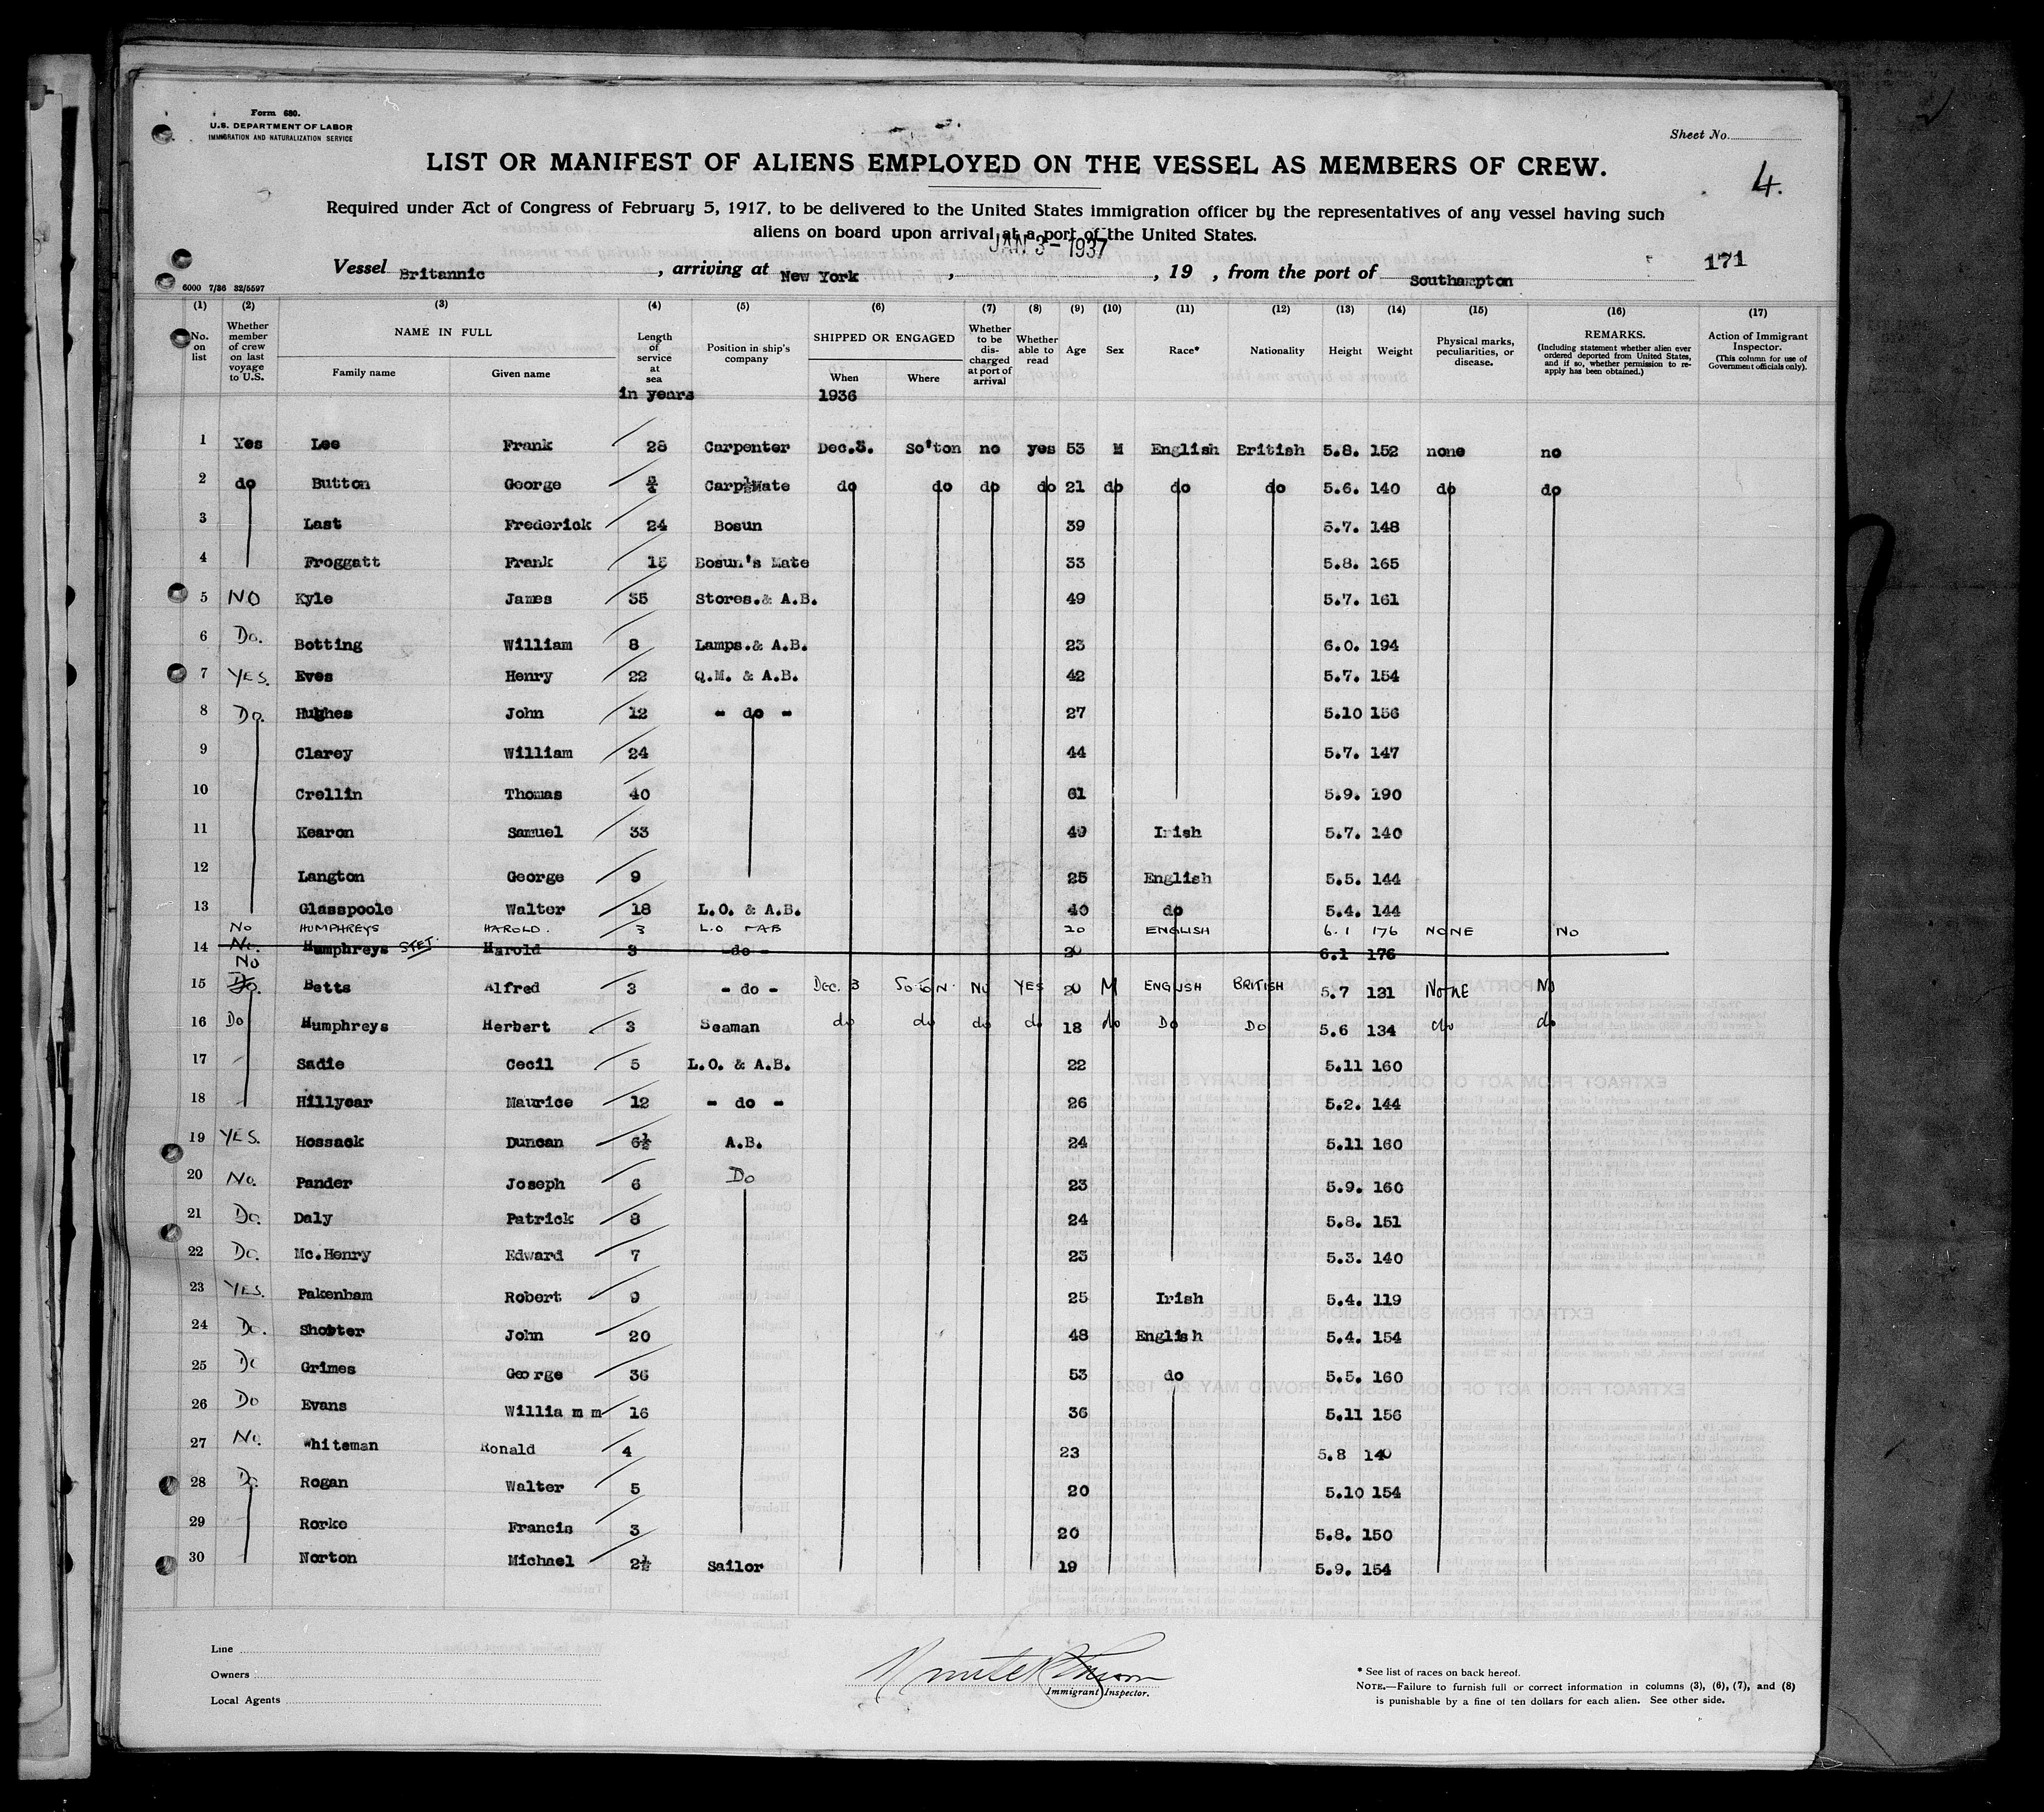 Form 680.
U.S. DEPARTMENT OF LABOR
IMMIGRATION AND NATURALIZATION SERVICE
Sheet No.
LIST OR MANIFEST OF ALIENS EMPLOYED ON THE VESSEL AS MEMBERS OF CREW.
4.
Required under Act of Congress of February 5, 1917, to be delivered to the United States immigration officer by the representatives of any vessel having such
aliens on board upon arrival at a port of the United States.
JAN 3 - 1937
Vessel Britannic, arriving at New York, , 19 , from the port of Southampton
171
6000 7/36 32/5597
(1) (2) (3) (4) (5) (6) (7) (8) (9) (10) (11) (12) (13) (14) (15) (16) (17)
No. on list Whether member of crew on last voyage to U.S. NAME IN FULL Family name Given name Length of service at sea Position in ship's company SHIPPED OR ENGAGED When Where Whether to be discharged at port of arrival Whether able to read Age Sex Race* Nationality Height Weight Physical marks, peculiarities, or disease. REMARKS. (Including statement whether alien ever ordered deported from United States, and if so, whether permission to re-apply has been obtained.) Action of Immigrant Inspector. (This column for use of Government officials only).
in years 1936
1 Yes Lee Frank 28 Carpenter Dec.3. So'ton no yes 53 M English British 5.8. 152 none no
2 do Button George Carpt Mate do do do do 21 do do do 5.6. 140 do do
3 Last Frederick 24 Bosun 39 5.7. 148
4 Froggatt Frank 15 Bosun's Mate 33 5.8. 165
5 NO Kyle James 35 Stores.& A.B. 49 5.7. 161
6 Do. Botting William 8 Lamps.& A.B. 23 6.0. 194
7 YES. Eves Henry 22 Q.M. & A.B. 42 5.7. 154
8 Do. Hughes John 12 - do - 27 5.10 156
9 Clarey William 24 44 5.7. 147
10 Crellin Thomas 40 61 5.9. 190
11 Kearon Samuel 33 49 Irish 5.7. 140
12 Langton George 9 25 English 5.5. 144
13 Glasspoole Walter 18 L.O. & A.B. 40 do 5.4. 144
No HUMPHREYS HAROLD. 3 L.O + AB 20 ENGLISH 6.1 176 NONE NO
14 No. Humphreys STET. Harold 3 -do- 20 6.1 176
No
15 Do. Betts Alfred 3 - do - DEC. 3 SO'TON NO YES 20 M ENGLISH BRITISH 5.7 131 NONE NO
16 Do Humphreys Herbert 3 Seaman do do do do 18 do Do Do 5.6 134 do do
17 Sadie Cecil 5 L.O. & A.B. 22 5.11 160
18 Hillyear Maurice 12 - do - 26 5.2. 144
19 YES. Hossack Duncan 6½ A.B. 24 5.11 160
20 No. Pander Joseph 6 Do 23 5.9. 160
21 Do. Daly Patrick 8 24 5.8. 151
22 Do. Mc.Henry Edward 7 23 5.3. 140
23 YES. Pakenham Robert 9 25 Irish 5.4. 119
24 Do. Shorter John 20 48 English 5.4. 154
25 Do Grimes George 36 53 do 5.5. 160
26 Do Evans Willia m m 16 36 5.11 156
27 No. Whiteman Ronald 4 23 5.8 140
28 Do. Rogan Walter 5 20 5.10 154
29 Rorke Francis 3 20 5.8. 150
30 Norton Michael 2½ Sailor 19 5.9. 154
Line
Owners
Local Agents
Immigrant Inspector.
* See list of races on back hereof.
NOTE.—Failure to furnish full or correct information in columns (3), (6), (7), and (8)
is punishable by a fine of ten dollars for each alien. See other side.